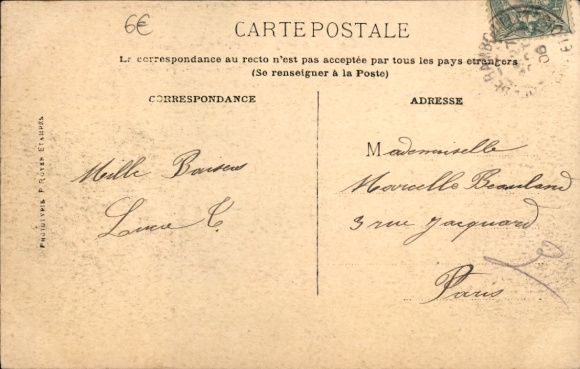 6€
CARTE POSTALE
La correspondance au recto n'est pas acceptée par tous les pays étrangers
(Se renseigner à la Poste)
CORRESPONDANCE
ADRESSE
PHOTOTYPIE P. ROYER ETAMPES
Mille Baisers
Mademoiselle
Marcelle Beauland
3 rue Jacquard
Paris